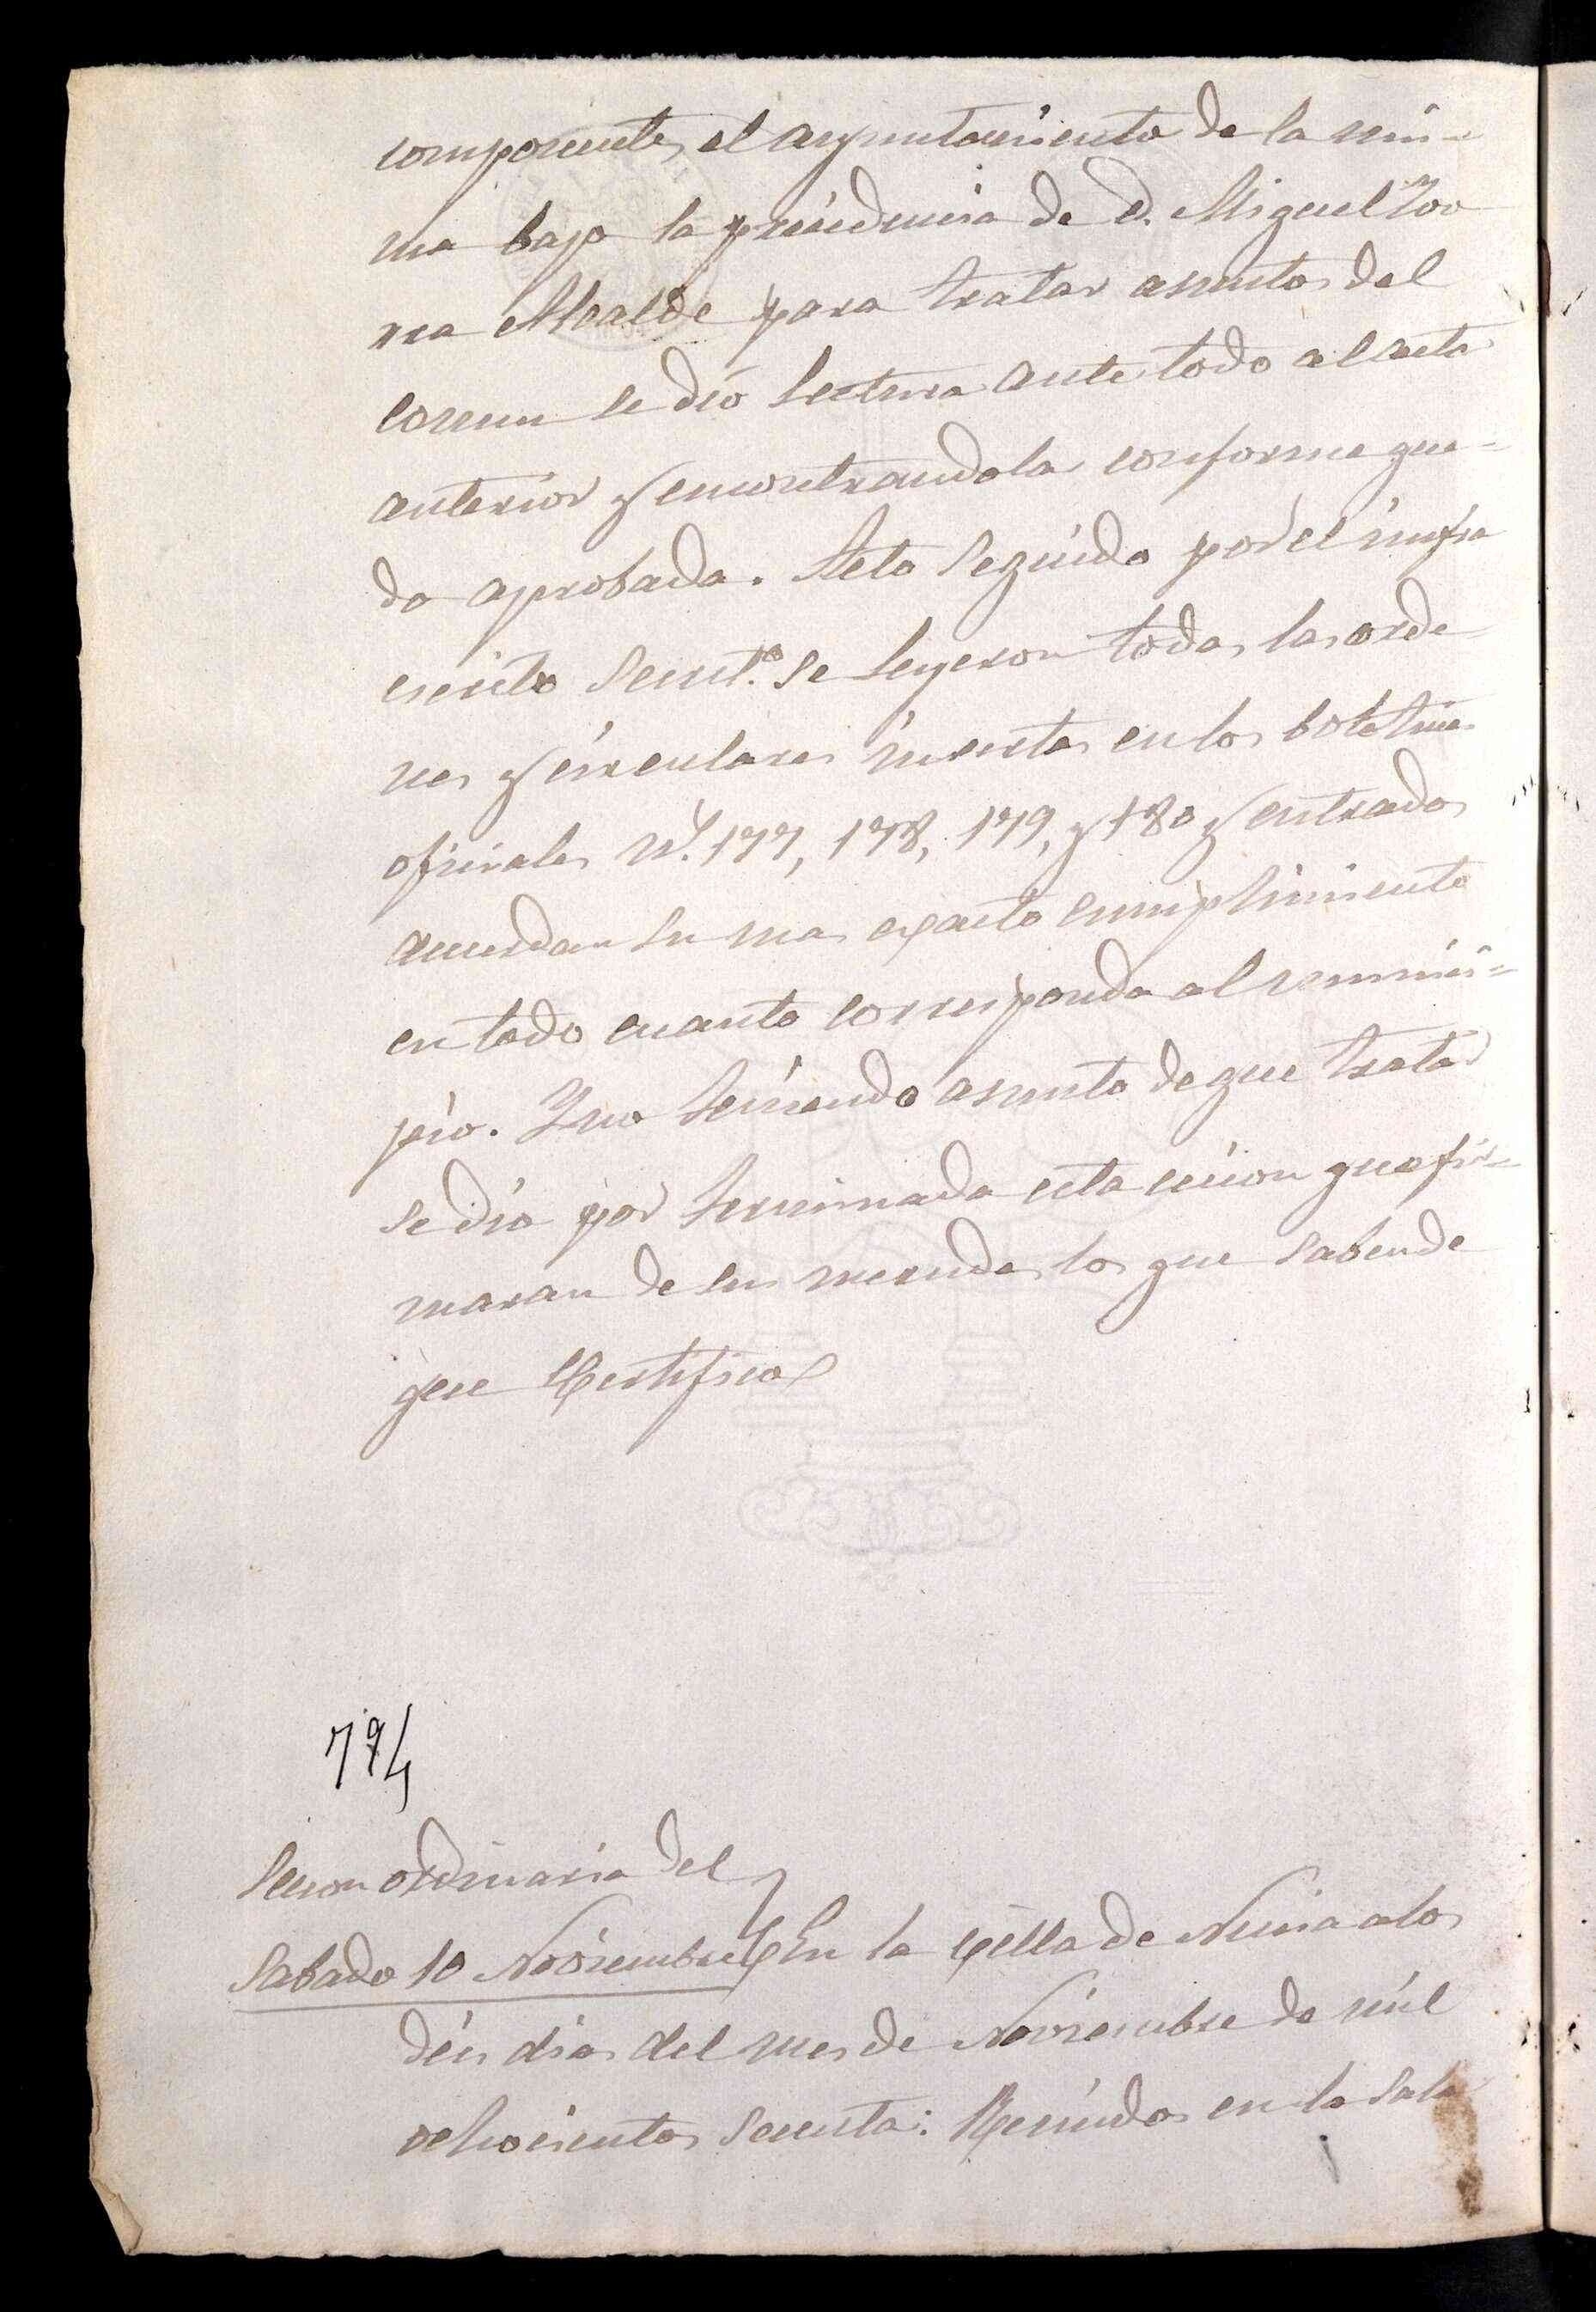 componentes el ayuntamiento de la mis=
ma bajo la presidencia de D. Miguel
Alcalde para tratar asuntos del
comun se dió lectura ante todo al acta
anterior y encontrandola conforme que=
do aprobada. Acto Seguido por el infra
escrito Secret.º se leyeron todas las orde
nes y circulares insertas en los boletines
oficiales N.s 177, 178, 179, y 180 y entrados
acuerdan su mas exacto cumplimiento
en todo cuanto corresponda al munici=
pio. Y no teniendo asunto de que tratar
se dio por terminada esta cecion que fir=
maran de sus mercedes los que saben de
que Certifico
794
Secion ordinaria del
Sabado 10 Noviembre En la Villa de Nucia a los
diés dias del mes de Noviembre de mil
ochocientos secenta: Reunidos en la Sala